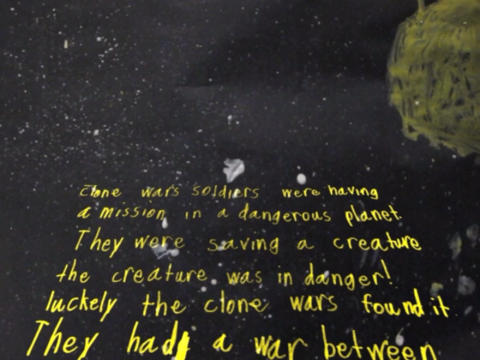 clone wars soldiers were having
a mission in a dangerous planet.
They were saving a creature
the creature was in danger!
luckely the clone wars found it
They had a war between